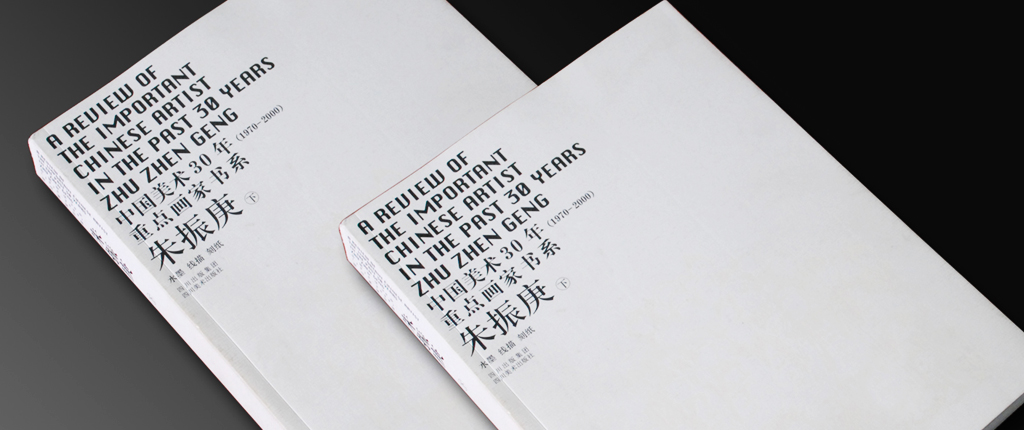 A REVIEW OF
THE IMPORTANT
CHINESE ARTIST
IN THE PAST 30 YEARS
ZHU ZHEN GENG
中国美术30年 (1970-2000)
重点画家书系
朱振庚 下
水墨 线描 刻纸
四川出版集团
四川美术出版社
A REVIEW OF
THE IMPORTANT
CHINESE ARTIST
IN THE PAST 30 YEARS
ZHU ZHEN GENG
中国美术30年 (1970-2000)
重点画家书系
朱振庚 下
水墨 线描 刻纸
四川出版集团
四川美术出版社